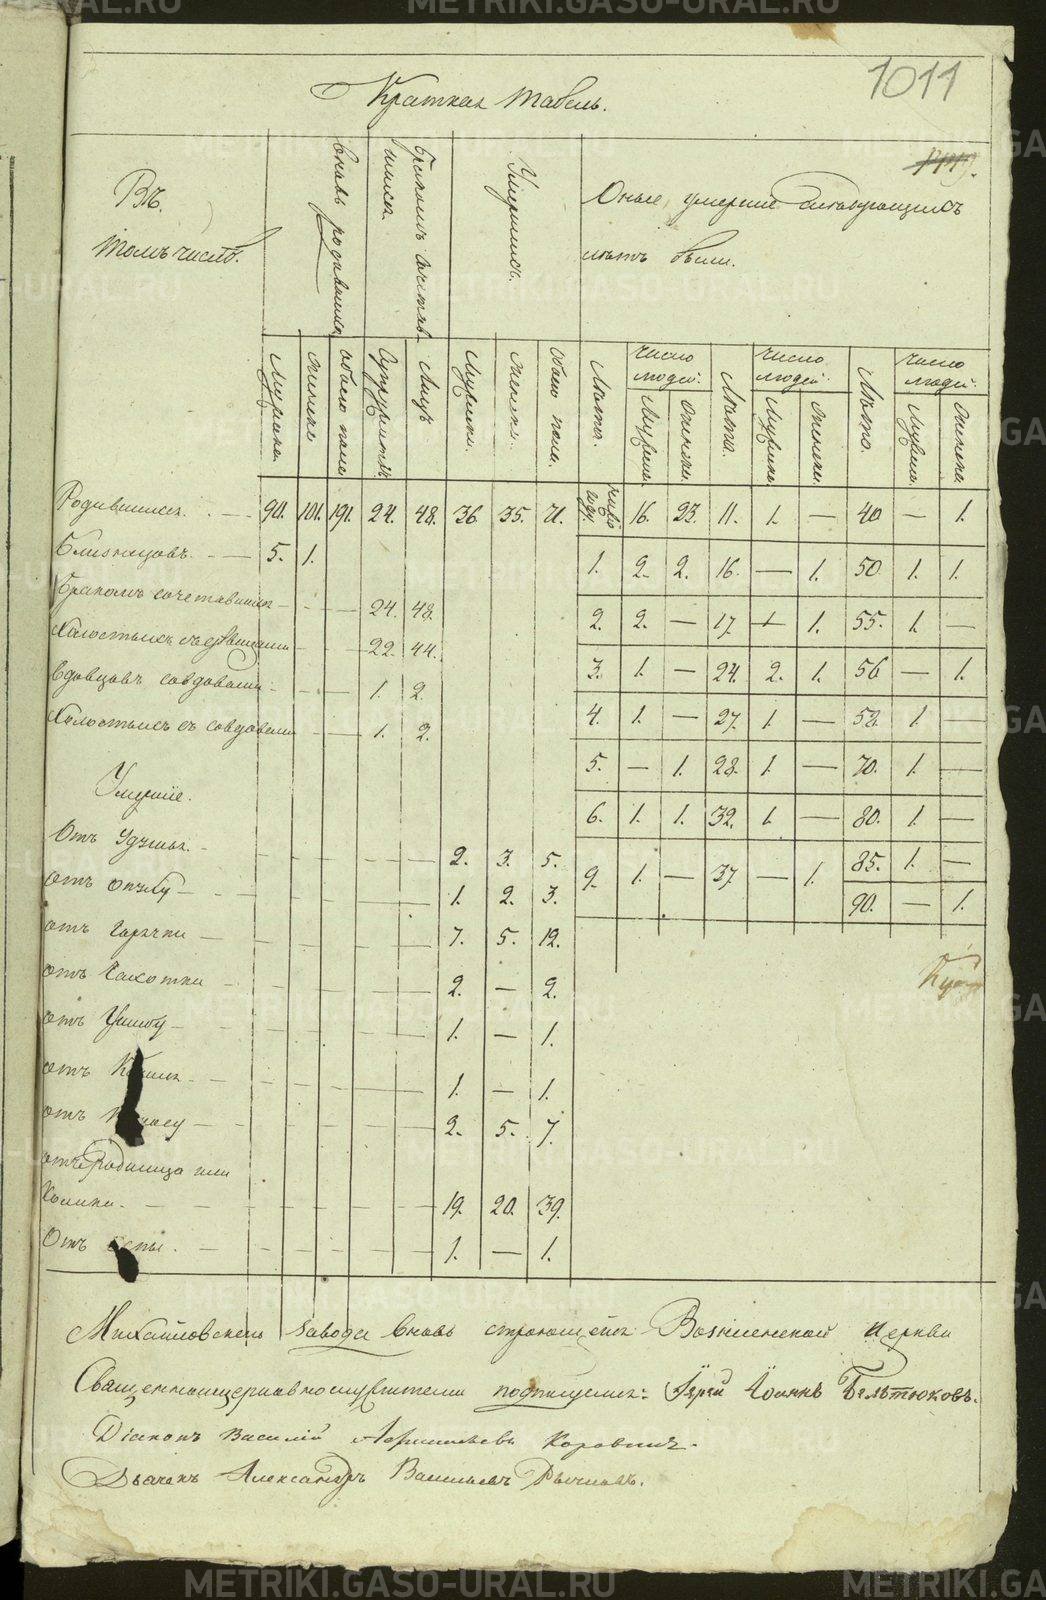 METRIKI.GASO-URAL.RU
1011
Краткая табель.
Въ
томъ числѣ.
вновь родившихся
бракомъ сочетавшихся
Умершихъ.
Оные умершие слѣдующихъ
лѣтъ были.
Мужска.
Женска
обоего пола
Супружествъ
Лицъ
Мужска.
Женска.
Обоего пола.
Лѣта.
число людей.
Мужска.
Женска.
Лѣта.
число людей.
Мужска.
Женска.
Лѣта.
число людей.
Мужска.
Женска.
Родившихся. — 90. 101. 191. 24. 48. 36. 35. 71.
Близнецовъ. — 5. 1.
Бракомъ сочетавшихся — — 24. 48.
Холостыхъ съ дѣвицами — — 22. 44.
Вдовцовъ со вдовами — — 1. 2.
Холостыхъ съ вдовами — — 1. 2.
Умершіе.
Отъ Удушья. — 2. 3. 5.
отъ опуху — 1. 2. 3.
отъ горячки — 7. 5. 12.
отъ чахотки — 2. — 2.
отъ — 1. — 1.
отъ Кашля — 1. — 1.
отъ — 2. 5. 7.
отъ Родимца или
Колики. — 19. 20. 39.
Отъ оспы. — 1. — 1.
16. 23. 11. 1. — 40 — 1.
1. 2. 2. 16. — 1. 50 1. 1.
2. 2. — 17 — 1. 55. 1. —
3. 1. — 24. 2. 1. 56 — 1.
4. 1. — 27. 1. — 58. 1. —
5. — 1. 28. 1. — 70. 1. —
6. 1. 1. 32. 1. — 80. 1. —
9. 1. — 37. — 1. 85. 1. —
90. — 1.
Михайловскаго завода вновь строющейся Вознесенской церкви
Священноцерковнослужители подписуемся: Іерей Іоаннъ Бельтюковъ.
Діаконъ Василій Коровинъ.
Дьячекъ Александръ Васильевъ Рычковъ.